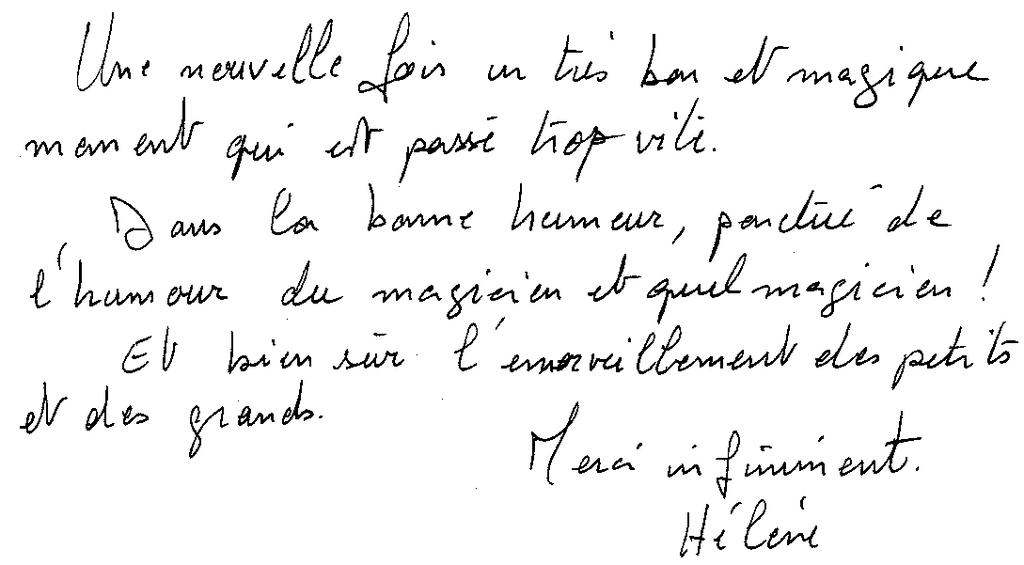 Une nouvelle fois un très bon et magique
moment qui est passé trop vite.
Dans la bonne humeur, ponctué de
l'humour du magicien et quel magicien !
Et bien sûr l'émerveillement des petits
et des grands.
Merci infiniment.
Hélène